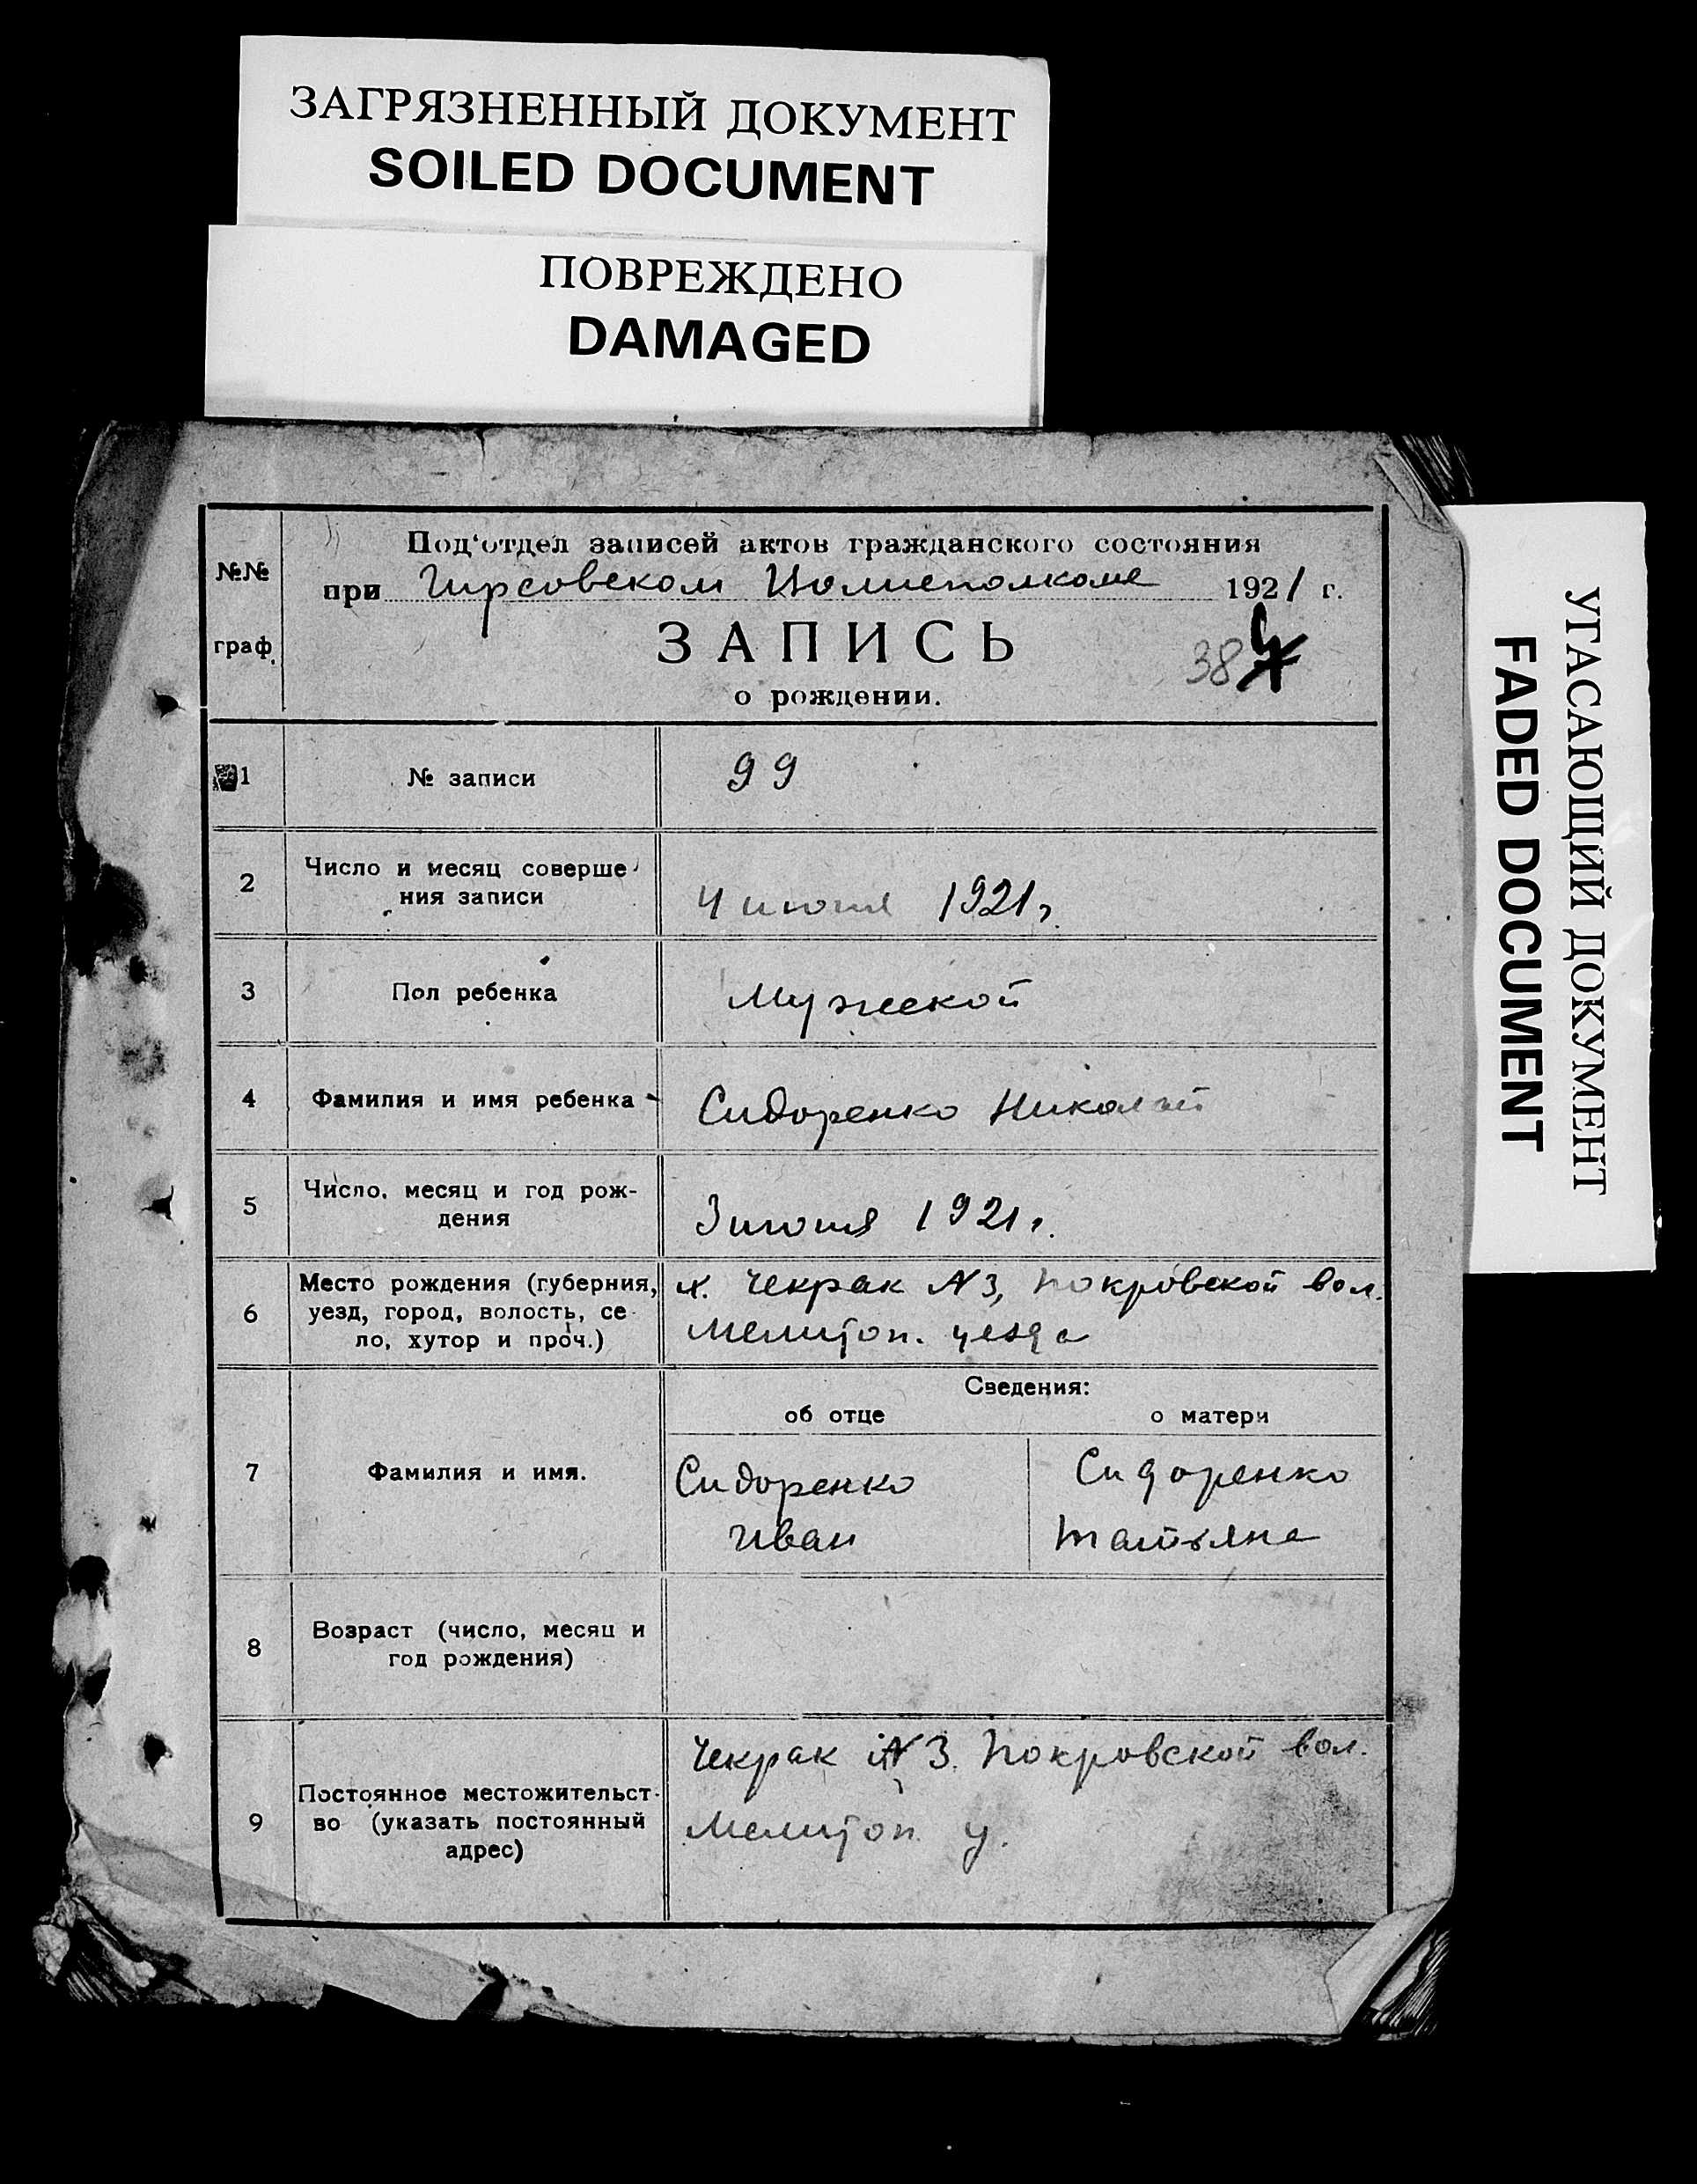 ЗАГРЯЗНЕННЫЙ ДОКУМЕНТ
SOILED DOCUMENT
ПОВРЕЖДЕНО
DAMAGED
УГАСАЮЩИЙ ДОКУМЕНТ
FADED DOCUMENT
№№
граф.
Под'отдел записей актов гражданского состояния
при Гирсовском Волисполкоме 1921 г.
ЗАПИСЬ
38
о рождении.
1 № записи 99
2 Число и месяц соверше
ния записи
4 июня 1921 г.
3 Пол ребенка Мужской
4 Фамилия и имя ребенка Сидоренко Николай
5 Число, месяц и год рож-
дения
3 июня 1921 г.
6 Место рождения (губерния,
уезд, город, волость, се-
ло, хутор и проч.)
х. Чекрак № 3, Покровской вол.
Мелитоп. уезда
Сведения:
об отце о матери
7 Фамилия и имя.
Сидоренко
Иван
Сидоренко
Татьяна
8 Возраст (число, месяц и
год рождения)
9 Постоянное местожительст-
во (указать постоянный
адрес)
Чекрак № 3. Покровской вол.
Мелитоп. у.